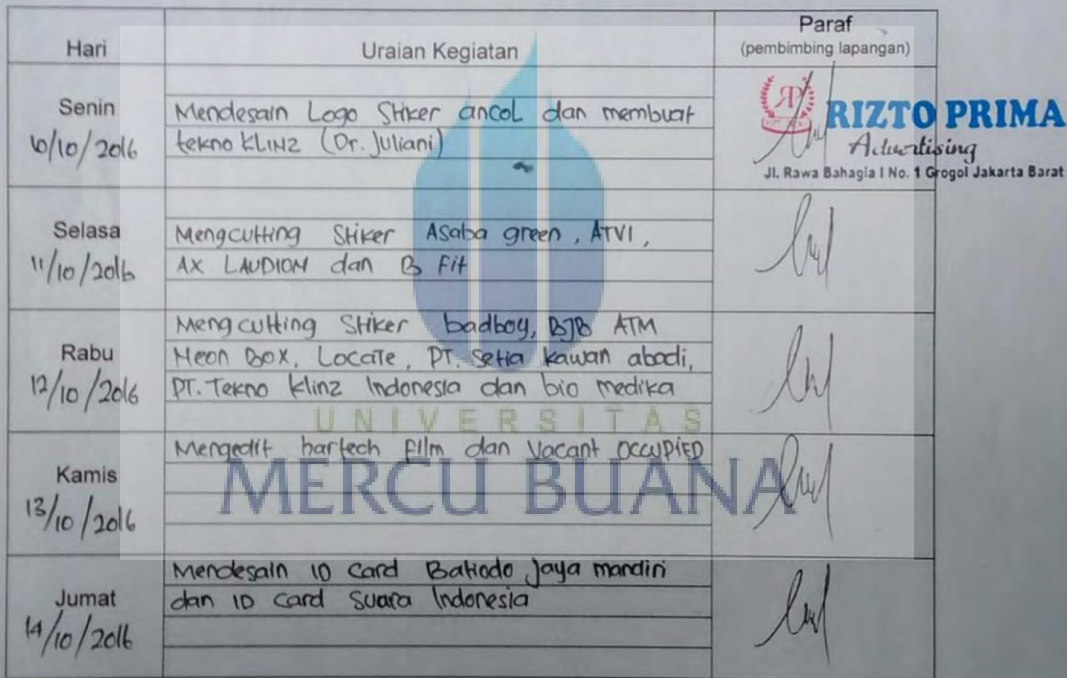 Hari Uraian Kegiatan Paraf
(pembimbing lapangan)
Senin
10/10/2016
Mendesain Logo Stiker ancol dan membuat
tekno KLINZ (Dr. Juliani)
RIZTO PRIMA
Advertising
Jl. Rawa Bahagia I No. 1 Grogol Jakarta Barat
Selasa
11/10/2016
Mengcutting Stiker Asaba green, ATVI,
AX LAUDION dan B Fit
Rabu
12/10/2016
Mengcutting Stiker badboy, BJB ATM
Neon Box, Locate, PT. Setia kawan abadi,
PT. Tekno klinz Indonesia dan bio medika
UNIVERSITAS
MERCU BUANA
Kamis
13/10/2016
Mengedit hartech film dan Vacant OCCUPIED
Jumat
14/10/2016
Mendesain ID Card Jaya mandiri
dan ID Card Suara Indonesia